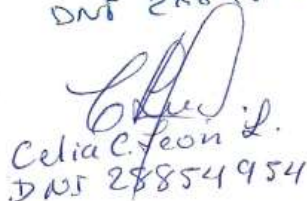 DNI
Celia C. Leon L.
DNI 28854954